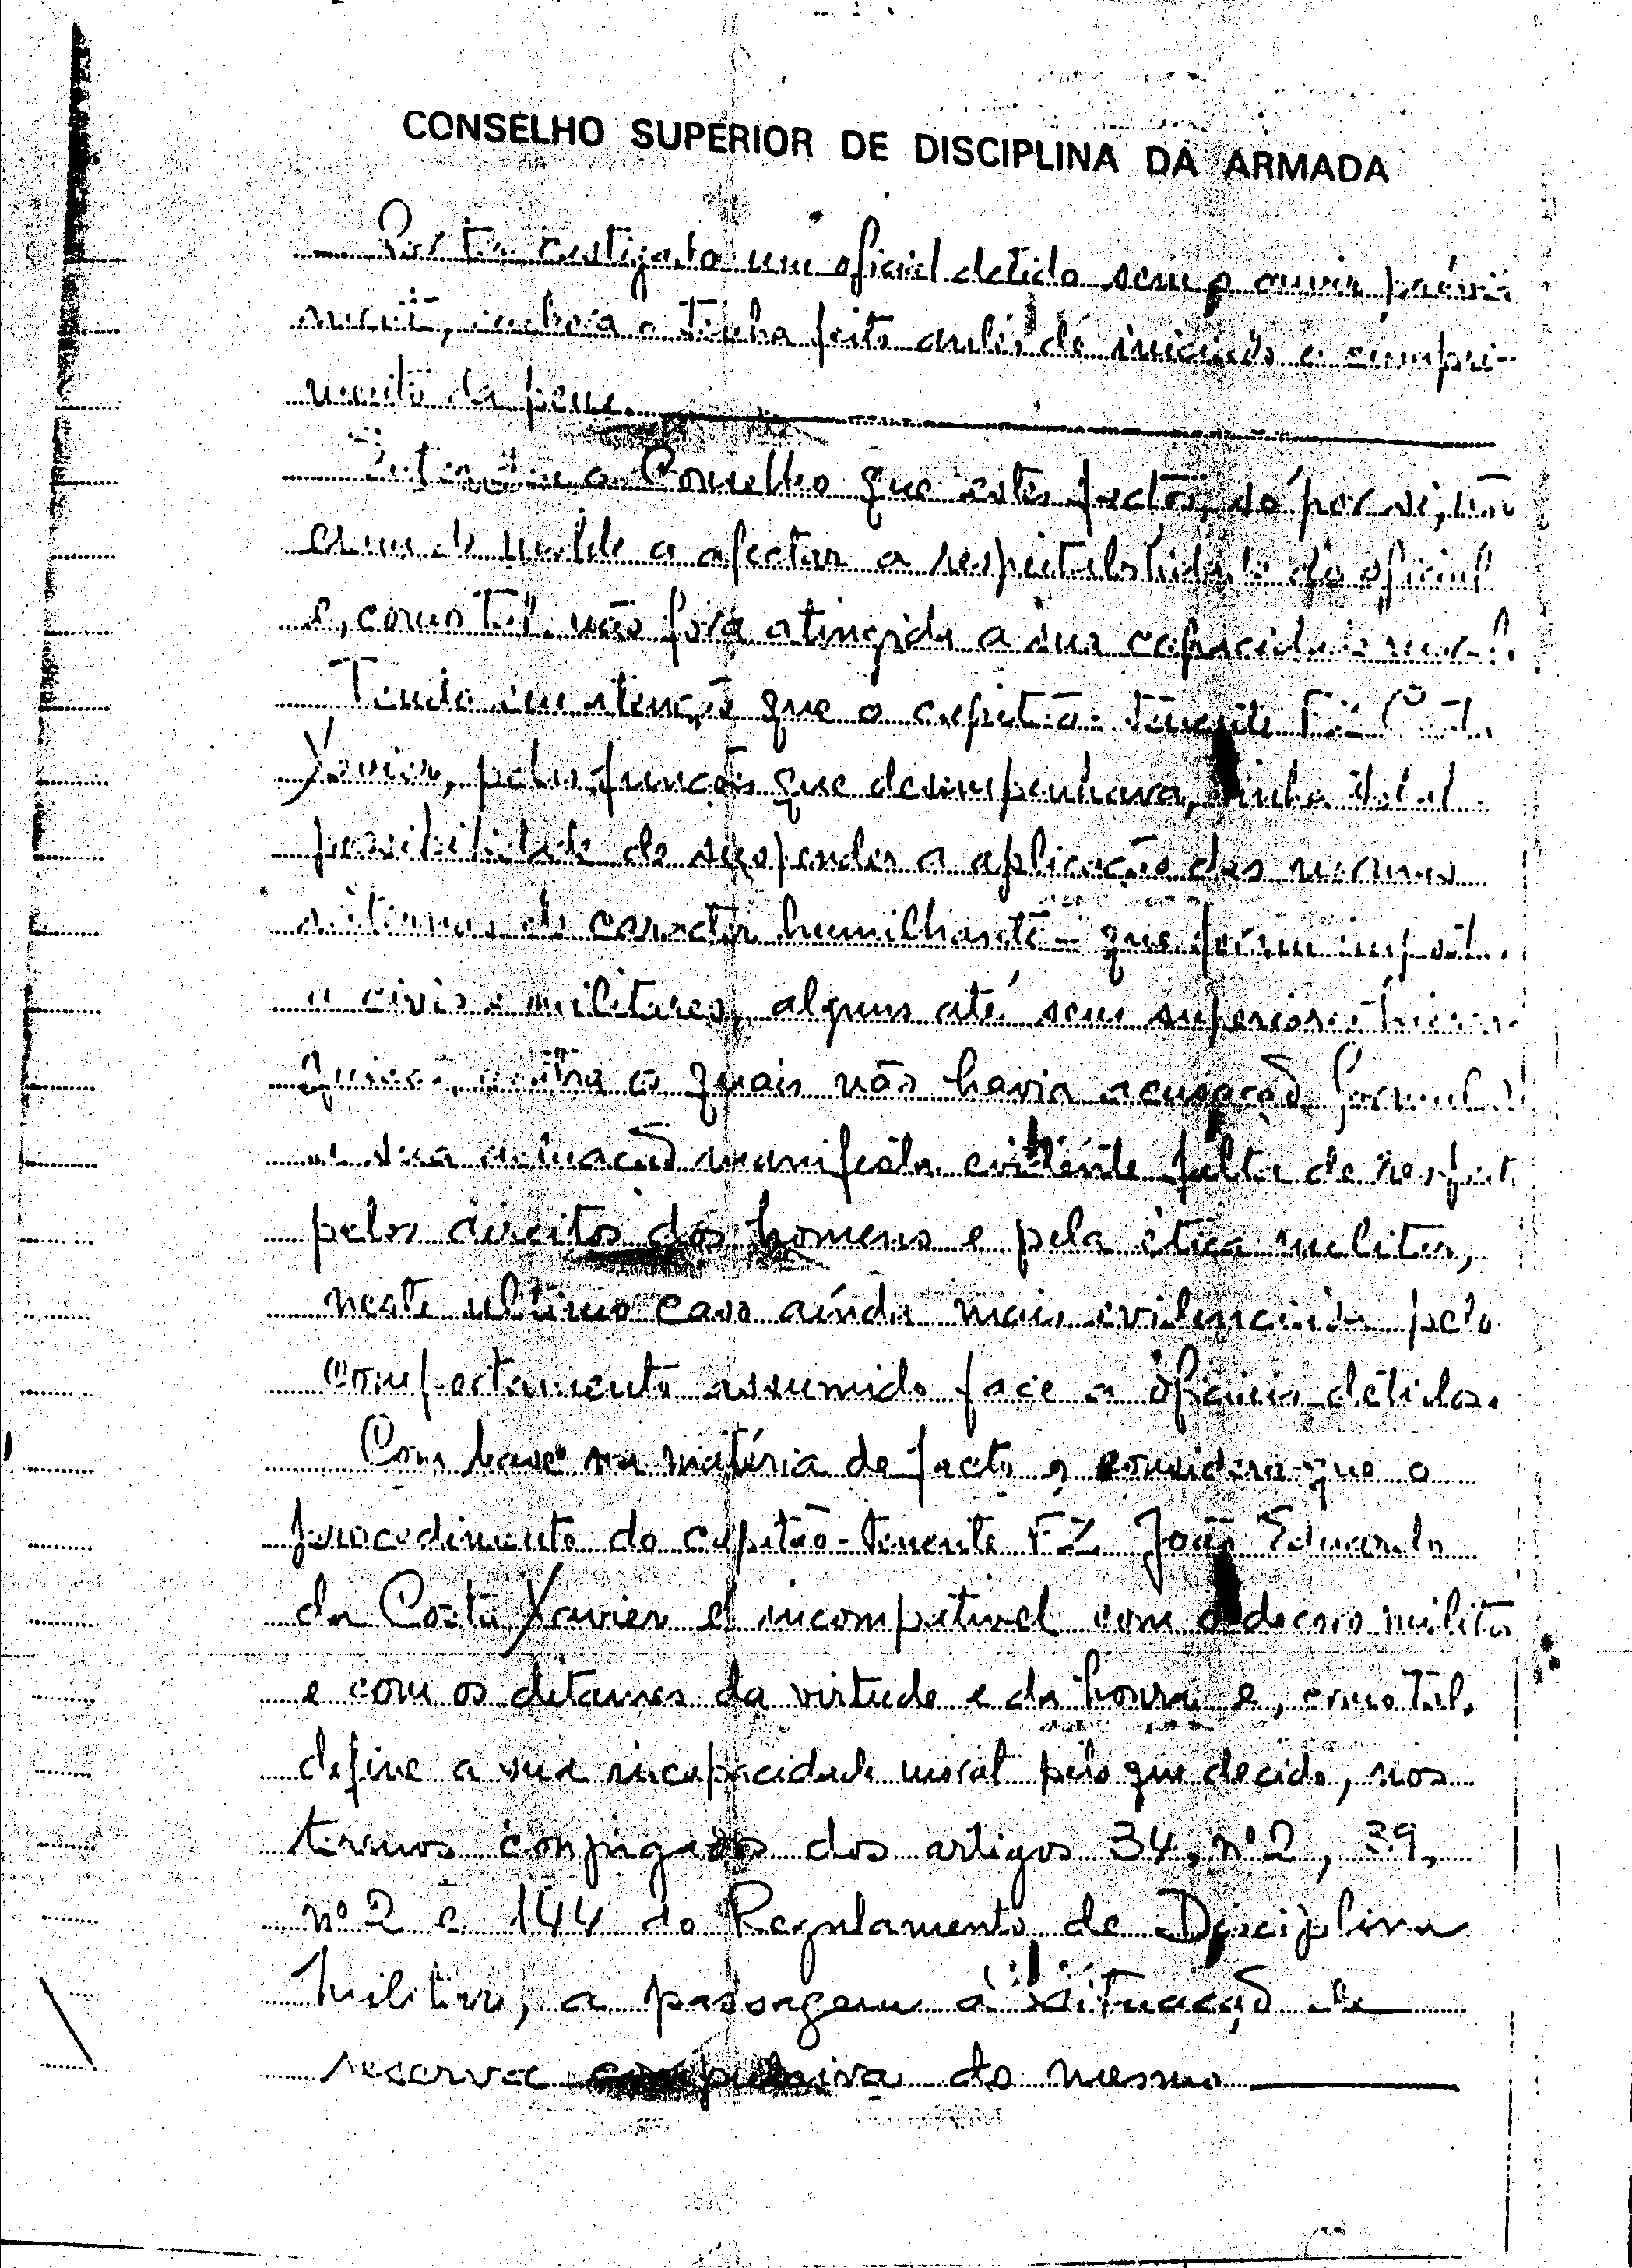 CONSELHO SUPERIOR DE DISCIPLINA DA ARMADA
castigado um oficial detido sem o ouvir
embora o tenha feito antes de iniciado o cumpri-
mento da pena.
o Conselho que estes factos, só por si, não
eram de molde a afectar a respeitabilidade do oficial
e, como tal, não fora atingida a sua capacidade moral.
Tendo em atenção que o capitão-tenente FZ Costa
Xavier, pelas funções que desempenhava, tinha total
possibilidade de suspender a aplicação das normas
internas de carácter humilhante - que foram impostas
a civis e militares, alguns até seus superiores hierár-
quicos, contra os quais não havia acusação formulada
a sua actuação manifesta evidente falta de respeito
pelos direitos dos homens e pela ética militar,
neste último caso ainda mais evidenciada pelo
comportamento assumido face a oficiais detidos.
Com base na matéria de facto, considera que o
procedimento do capitão-tenente FZ João Eduardo
da Costa Xavier é incompatível com o decoro militar
e com os ditames da virtude e da honra e, como tal,
define a sua incapacidade moral pelo que decide, nos
termos conjugados dos artigos 34, nº 2, 39,
nº 2 e 144 do Regulamento de Disciplina
Militar, a passagem à situação de
reserva compulsiva do mesmo